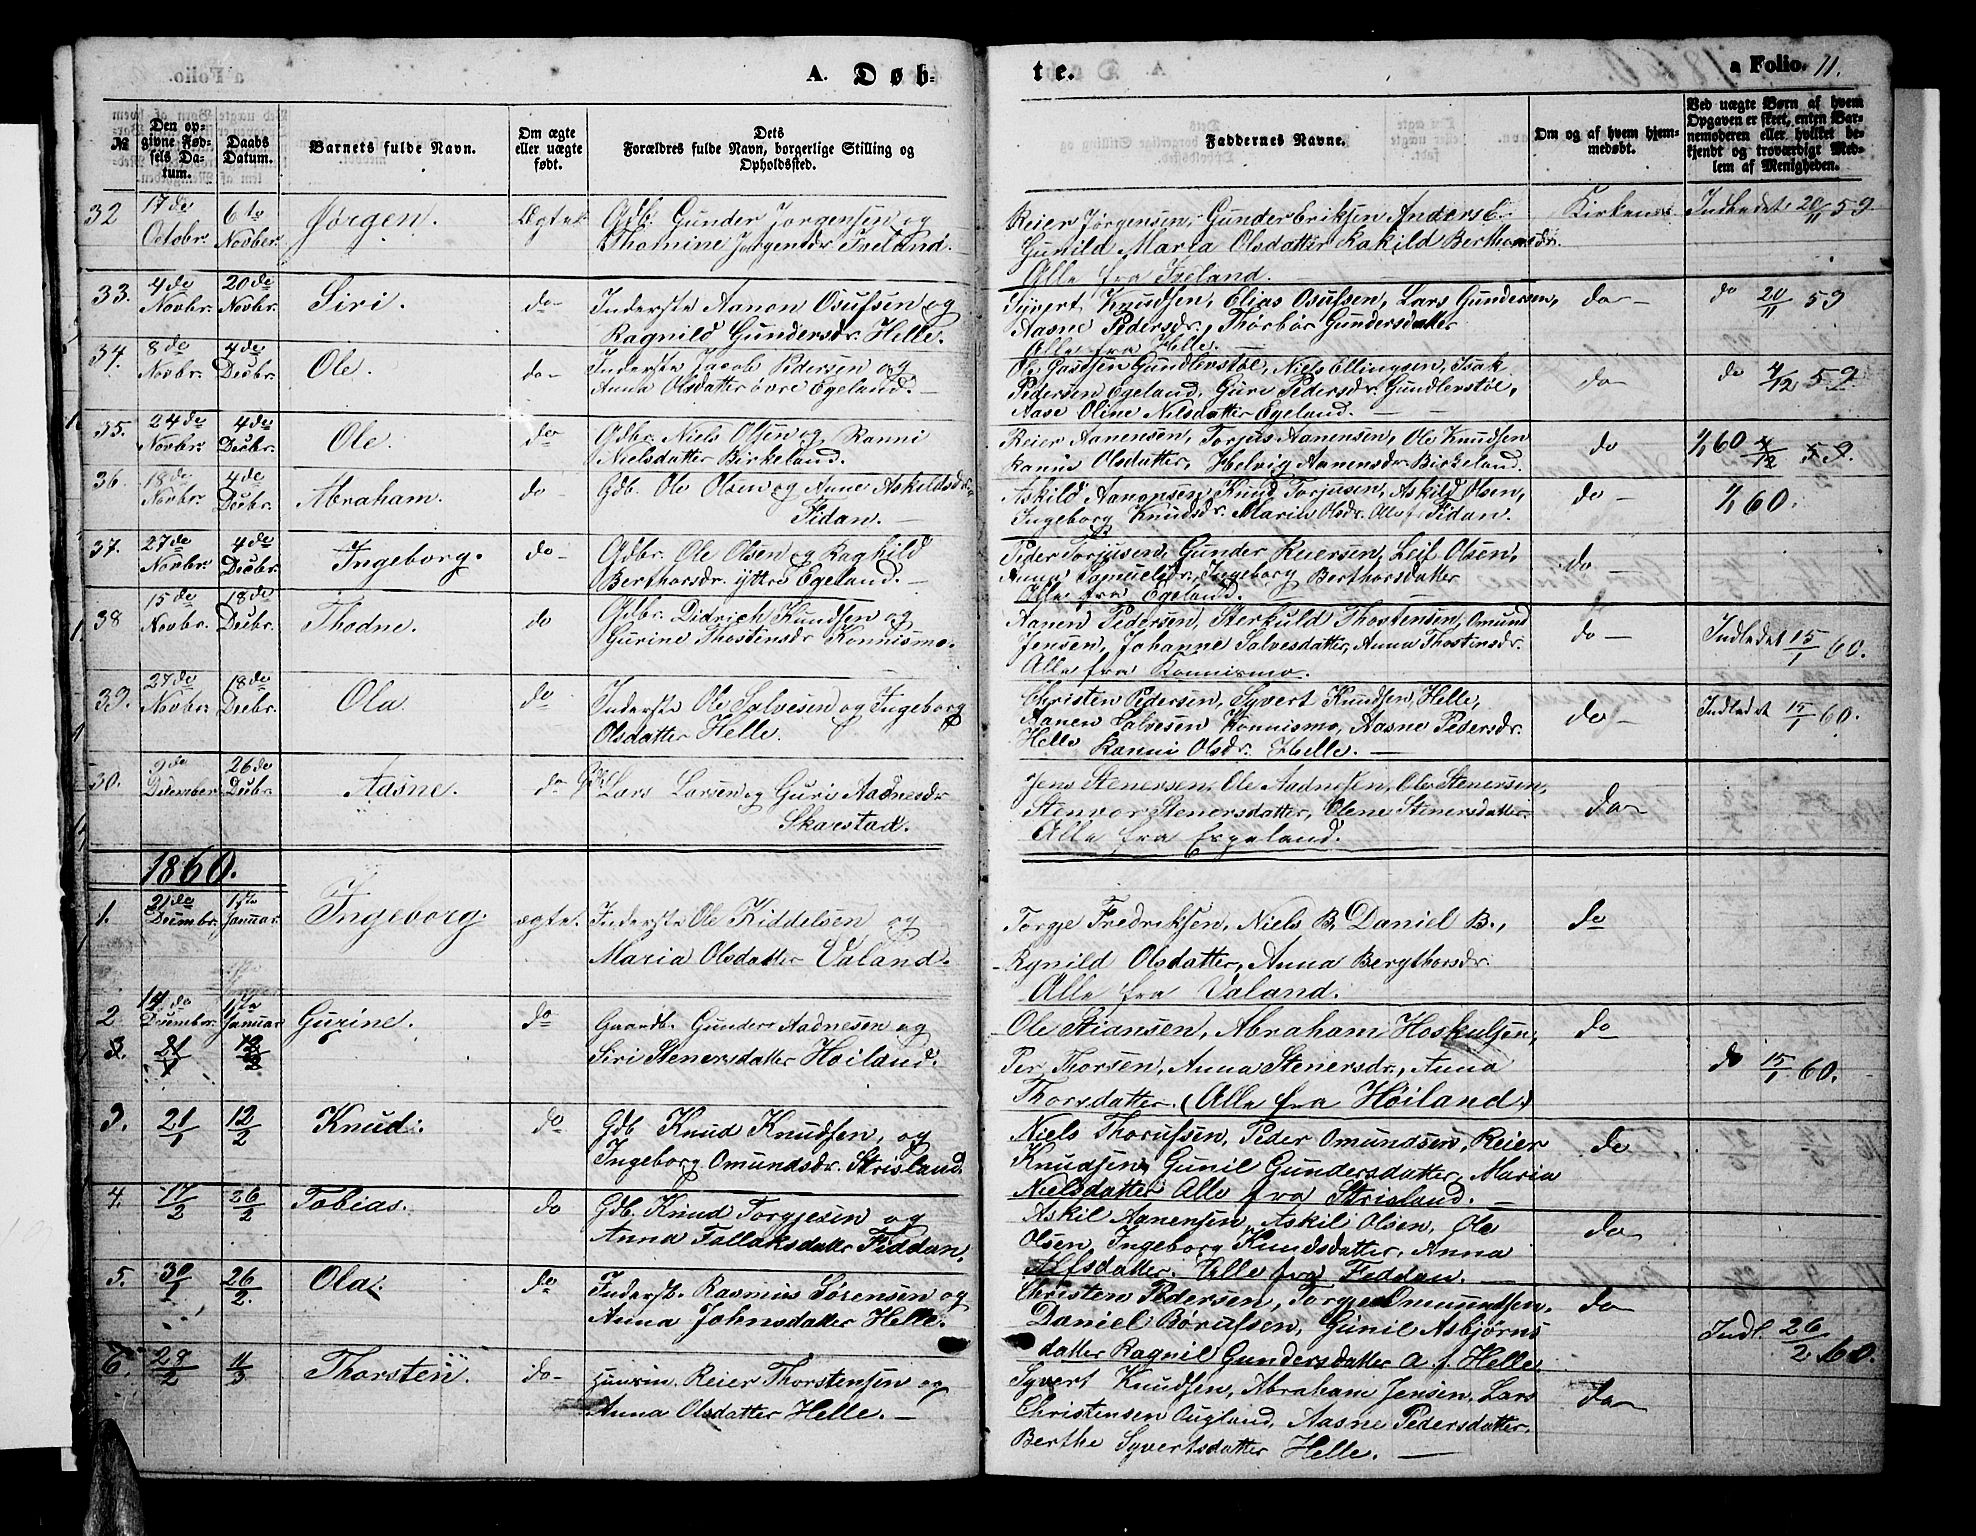 A. Døb-
№
Den op-
givne Fød-
sels Da-
tum.
Daabs
Datum.
Barnets fulde Navn.
Om ægte
eller uægte
født.
Dets
Forældres fulde Navn, borgerlige Stilling og
Opholdssted.
32 17de Octobr. 6te Novber. Jørgen. Ægte Gdb. Gunder Jørgensen og
Thomine Jørgensdr Iveland.
33. 4de Novbr. 20de Novbr. Siri. do- Inderste Aanon Osufsen og
Ragnild Gundersdr. Helle.
34. 8de Novbr. 4de Decbr. Ole. do- Inderste Jacob Pedersen og
Anna Olsdatter övre Egeland. -
35. 24de Novbr. 4de Decbr. Ole. do Gdbr. Niels Olsen og Ranni
Nielsdatter Birkeland.
36. 18de Novbr. 4de Decbr. Abraham. do Gdb. Ole Olsen og Anne Askildsdr.
Fidan. -
37. 27de Novbr. 4de Decbr. Ingeborg. do- Gdbr. Ole Olsen og Raghild
Berthorsdr. yttre Egeland. -
38 15de Novbr. 18de Decbr. Thodne. do Gdbr. Didrich Knudsen og
Gurine Thostinsdr Konnismo.
39. 27de Novbr 18de Decbr. Ola. do Inderste Ole Salvesen og Ingeborg
Olsdatter Helle.
30. 9de December 26de Decbr. Aasne. do Gdb. Lars Larsen og Guri Aadnesdr
Skarstad.
1860.
1. 21de Decmbr. 1ste Januar. Ingeborg. ægte. Inderste Ole Kiddelsen og
Maria Olsdatter Valand.
2 14de Decembr. 1ste Januar Gurine. do Gaardb. Gunder Aadnesen og
3. 21/1 12/2 Siri Stenersdatter Hoiland.
3. 21/1 12/2 Knud. do Gdb Knud Knudsen, og
Ingeborg Omundsdr. Strisland.
4. 17/2 26/2 Tobias. do Gdb. Knud Torgjesen og
Anna Follaksdatter Fiddan.
5. 30/1 26/2. Ola. do Inderst. Rasmus Sørensen og
Anna Johnsdatter Helle.
6. 29/2 11/3 Thorsten. do- Huusm. Reier Thorstensen og
Anna Olsdatter Helle. -
te.
a Folio. 11.
Faddernes Navne.
Om og af hvem hjem-
medøbt.
Ved uægte Børn af hvem
Opgaven er skeet, enten Bar-
nemoderen eller hvilket be-
kjendt og troværdigt Med-
lem af Menigheden.
Reier Jørgensen, Gunder Eriksen Anders E. Kirken Indledet 20/11 59
Gunild Maria Olsdatter Rakild Berthorsdr.
Alle fra Iveland.
Syvert Knudsen, Elias Osufsen, Lars Gundersen, do- do 20/11 59
Aasne Pedersdr., Thorbør Gundersdatter
Alle fra Helle. -
Ole Gastsen Gundlerstøl, Niels Ellingsen, Isak do do 4/12 59
Pedersen Egeland, Guri Pedersdr. Gundlerstøl,
Aase Oline Nilsdatter Egeland. -
Reier Aanensen, Torjus Aanensen, Ole Knudsen do 1/1 60 4/12 59.
Ranni Olsdatter, Helvig Aanensdr. Birkeland.
Askild Aanonsen, Knud Torjusen, Askild Olsen, do- 1/1 60.
Ingeborg Knudsdr. Marile Olsdr. Alle f. Fidan.
Peder Torjusen, Gunder Reiersen, Leif Olson, do-
Anna Samuelsdr., Ingeborg Berthorsdatter
Alle fra Egeland.
Aanen Pedersen, Sterkuld Thostensen, Omund do- Indledet 15/1 60.
Jensen, Johanne Salvesdatter, Anna Thostensdr.
Alle fra Konnismo.
Christen Pedersen, Syvert Knudsen, Helle, do- Indledet 15/1 60.
Aanen Salvesen Konnismo, Aasne Pedersdr.
Helle Ranni Olsdr. Helle. -
Jens Stenersen, Ole Aadnesen, Ole Stenersen, do-
Stenvor Stenersdatter, Olene Stenersdatter
Alle fra Espeland.
Torgje Fredriksen, Niels B. Daniel B., do
Rgnild Olsdatter, Anna Bergthorsdr.
Alle fra Valand.
Ole Stiansen, Abraham Hoskulsen, do
Per Thorsen, Anna Stenersdr., Anna do 15/1 60.
Thorsdatter. (Alle fra Høiland)
Niels Thorufsen, Peder Omundsen, Reier do
Knudsen, Gunil Gundersdatter, Maria
Nielsdatter Alle fra Strisland. -
Askil Aanensen, Askil Olsen, Ole do
Olsen, Ingeborg Knudsdatter, Anna
Alfsdatter. Alle fra Fiddan. -
Christen Pedersen, Torgje Omundsen, do
Daniel Borufsen, Gunil Asbjørns Indl. 26/2 60.
datter Ragnil Gundersdatter A. f. Helle
Syvert Knudsen, Abraham Jensen, Lars do
Christensen Ougland, Aasne Pedersdatter,
Berthe Syvertsdatter Helle. -